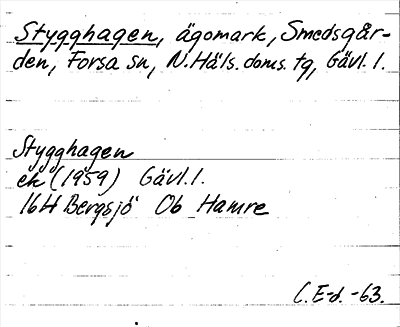 Stygghagen, ägomark, Smedsgår-
den, Forsa sn, N. Häls. doms. tg, Gävl. l.
Stygghagen
ek (1959) Gävl. l.
16H Bergsjö Ob Hamre
C. E-d. -63.